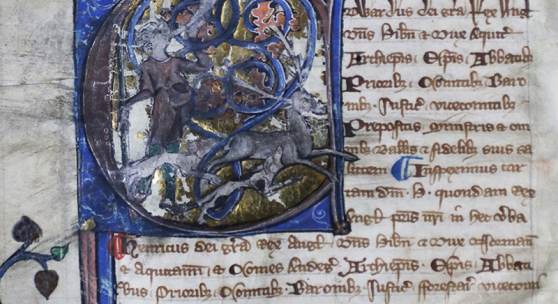 Edwardus dei gra Rex Angl
Dns Hibn & Dux Aquit
Archiepis · Epis · Abbatibȝ
Prioribȝ · Comitibȝ · Baro
nibȝ · Justic · vicecomitibȝ
Prepositis · ministris & om
nibȝ ballis & fidelibȝ suis sa
lutem ¶ Inspeximus car
tam dni · H · quondam Reg
Angl pris nri in hec verba
Henricus dei gra Rex Angl Dns Hibn & Dux Normann
& Aquitann · & Comes Andeg · Archiepis · Epis · Abbati
bus · Prioribȝ · Comitibȝ · Baronibȝ · Justic · forestar · vicecomi